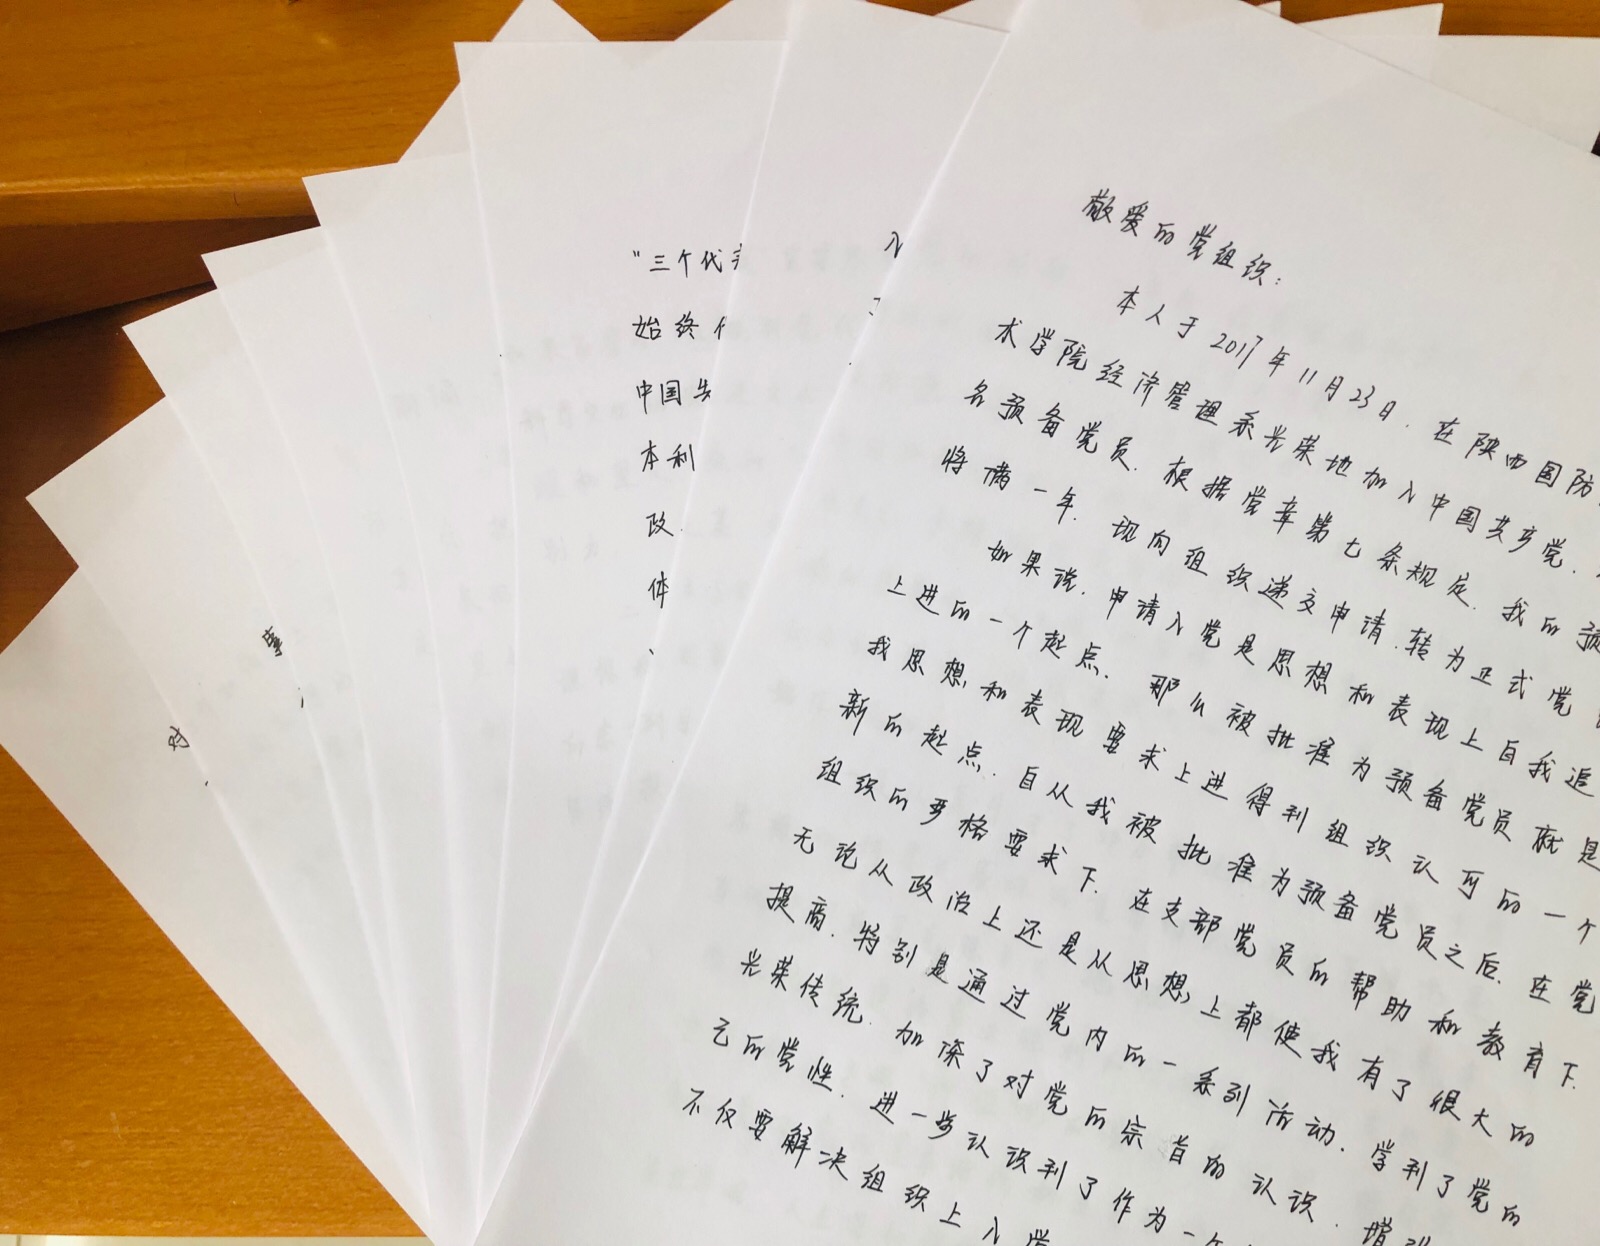 敬爱的党组织:
本人于2017年11月23日.在陕西国防
术学院经济管理系光荣地加入中国共产党.
名预备党员.根据党章第七条规定.我的预
将满一年.现向组织递交申请.转为正式党
如果说.申请入党是思想和表现上自我追
上进的一个起点.那么被批准为预备党员就是
我思想和表现要求上进得到组织认可的一个
新的起点.自从我被批准为预备党员之后.在党
组织的严格要求下.在支部党员的帮助和教育下.
无论从政治上还是从思想上都使我有了很大的
提高.特别是通过党内的一系列活动.学到了党的
光荣传统.加深了对党的宗旨的认识.增强
己的党性.进一步认识到了作为一个
不仅要解决组织上入党
"三个代
始终
中国
本利
政.
体
、
入
对